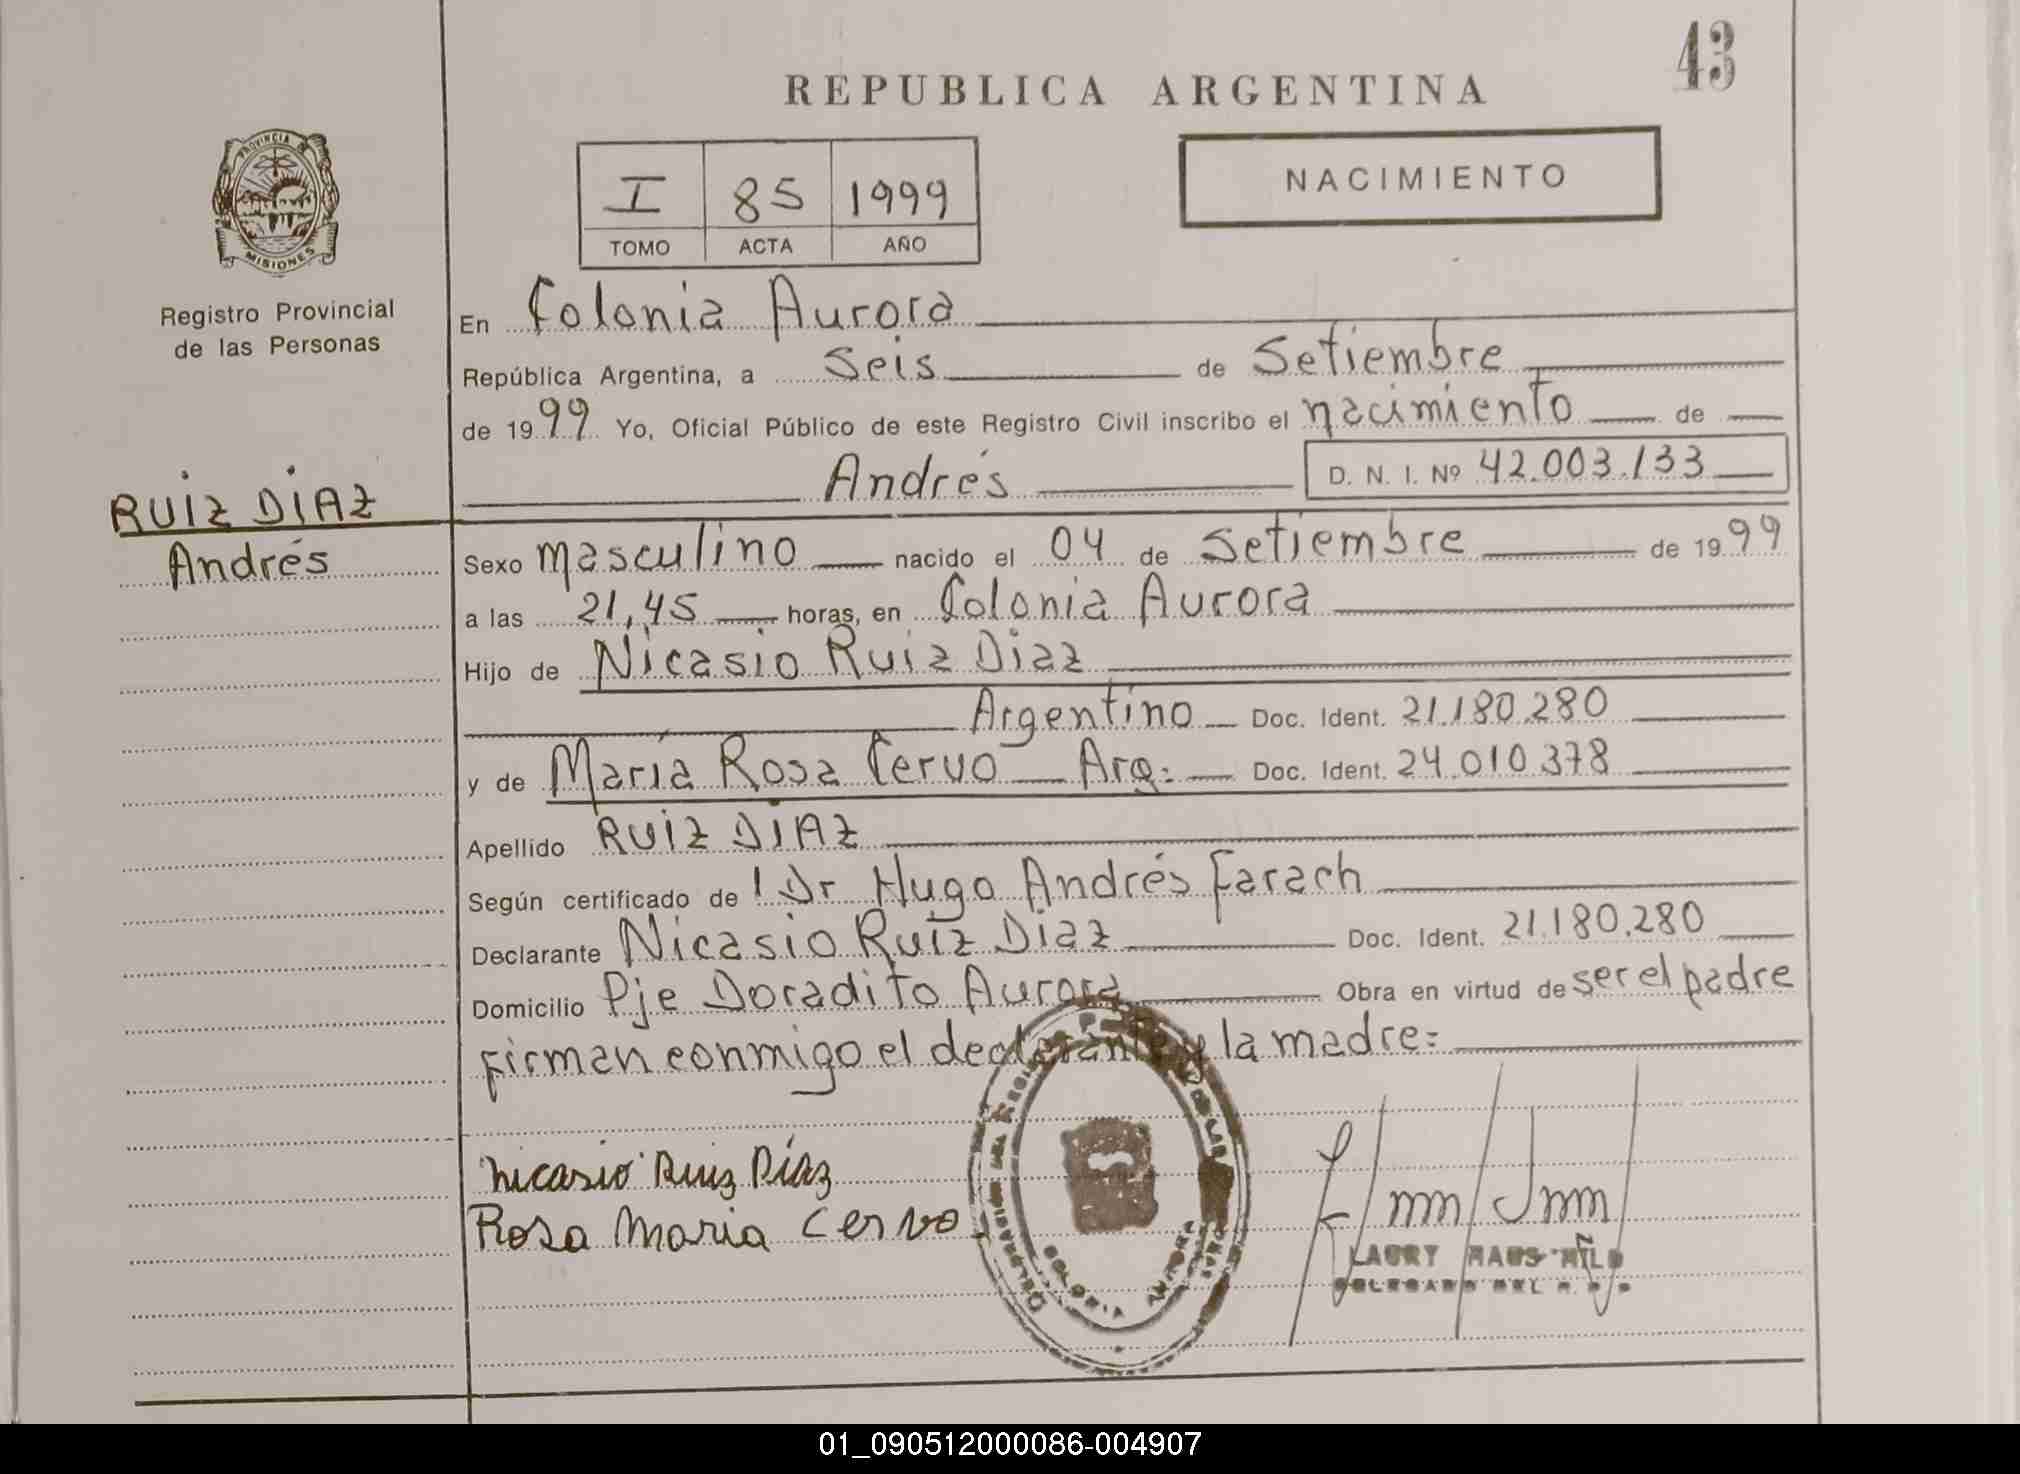 43
REPUBLICA ARGENTINA
PROVINCIA DE
MISIONES
Registro Provincial
de las Personas
I 85 1999
TOMO ACTA AÑO
NACIMIENTO
En Colonia Aurora
República Argentina, a Seis de Setiembre
de 1999 Yo, Oficial Público de este Registro Civil inscribo el nacimiento de
Andrés D. N. I. Nº 42.003.133
RUIZ DIAZ
Andrés
Sexo masculino nacido el 04 de Setiembre de 1999
a las 21,45 horas, en Colonia Aurora
Hijo de Nicasio Ruiz Diaz
Argentino Doc. Ident. 21.180.280
y de María Rosa Cervo Arg: Doc. Ident. 24.010.378
Apellido RUIZ DIAZ
Según certificado de Dr Hugo Andrés Farach
Declarante Nicasio Ruiz Diaz Doc. Ident. 21.180.280
Domicilio Pje Doradito Aurora Obra en virtud de ser el padre
firman conmigo el declarante y la madre:
nicasio Ruiz Díaz
Rosa Maria Cervo
COLONIA AURORA
LAURY HAUS